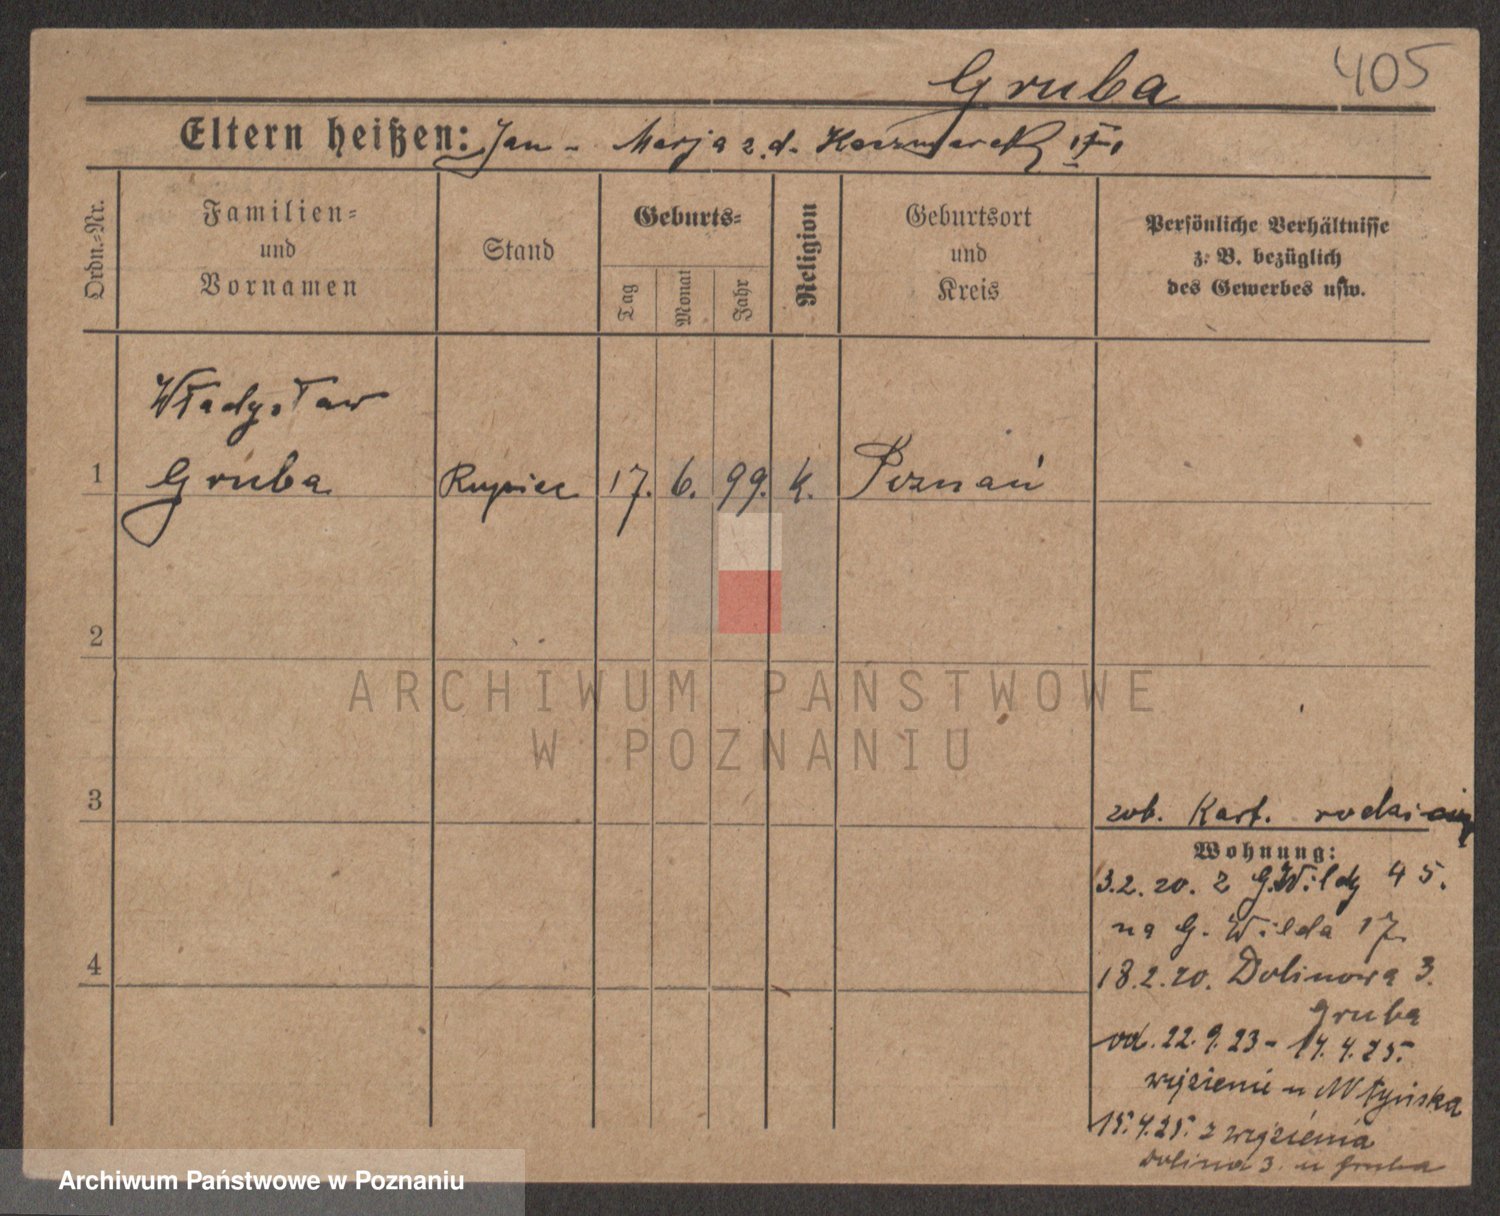 Gruba
405
Eltern heißen: Jan - Marja z d. Kaczmarek
Ordn.-Nr.
Familien-
und
Vornamen
Stand
Geburts-
Tag
Monat
Jahr
Religion
Geburtsort
und
Kreis
Persönliche Verhältnisse
z. B. bezüglich
des Gewerbes usw.
Władysław
1 Gruba Kupiec 17. 6. 99. k. Poznań
2
ARCHIWUM PAŃSTWOWE
W POZNANIU
3
zob. Kart. rodzicią
Wohnung:
3.2.20. z G. Wildy 45.
na G. Wilda 17
4
18.2.20. Dolinowa 3.
Gruba
od. 22.9.23 - 14.4.25.
więzienie u Młyńska
15.4.25. z więzienia
Dolina 3. u Gruba
Archiwum Państwowe w Poznaniu